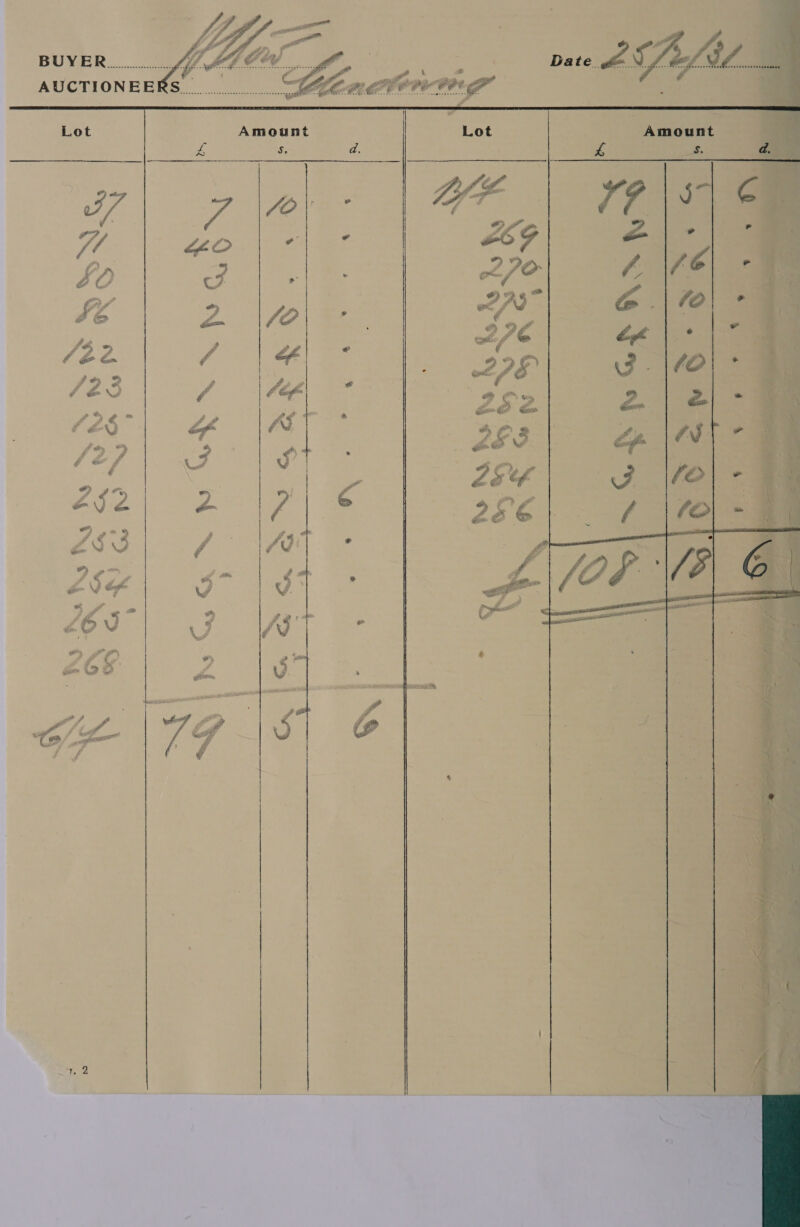 BUYER
Date
AUCTIONEERS
Lot Amount Lot Amount
£ s. d. £ s. d.
37 7 10 - B/F 79 5 6
71 40 - - 269 2 - -
80 3 - - 270 1 16 -
86 2 10 - 275 6 10 -
122 1 4 - 276 4 - -
123 1 14 - 278 3 10 -
125 4 15 - 282 2 2 -
127 3 5 - 283 4 15 -
252 2 7 6 284 3 10 -
253 1 15 - 286 1 10 -
254 5 5 - £ 108 18 6
265 3 15 -
268 2 5 -
C/F 79 5 6